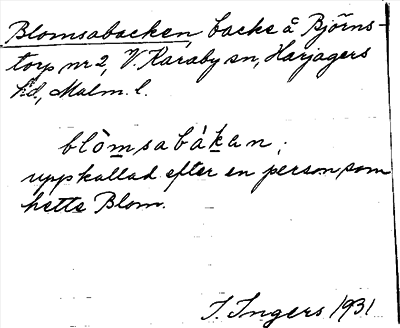 Blomsabacken, backe å Björns-
torp nr 2, V. Karaby sn, Harjagers
hd, Malm. l.
blòmsabákan;
uppkallad efter en person som
hette Blom.
I. Ingers 1931